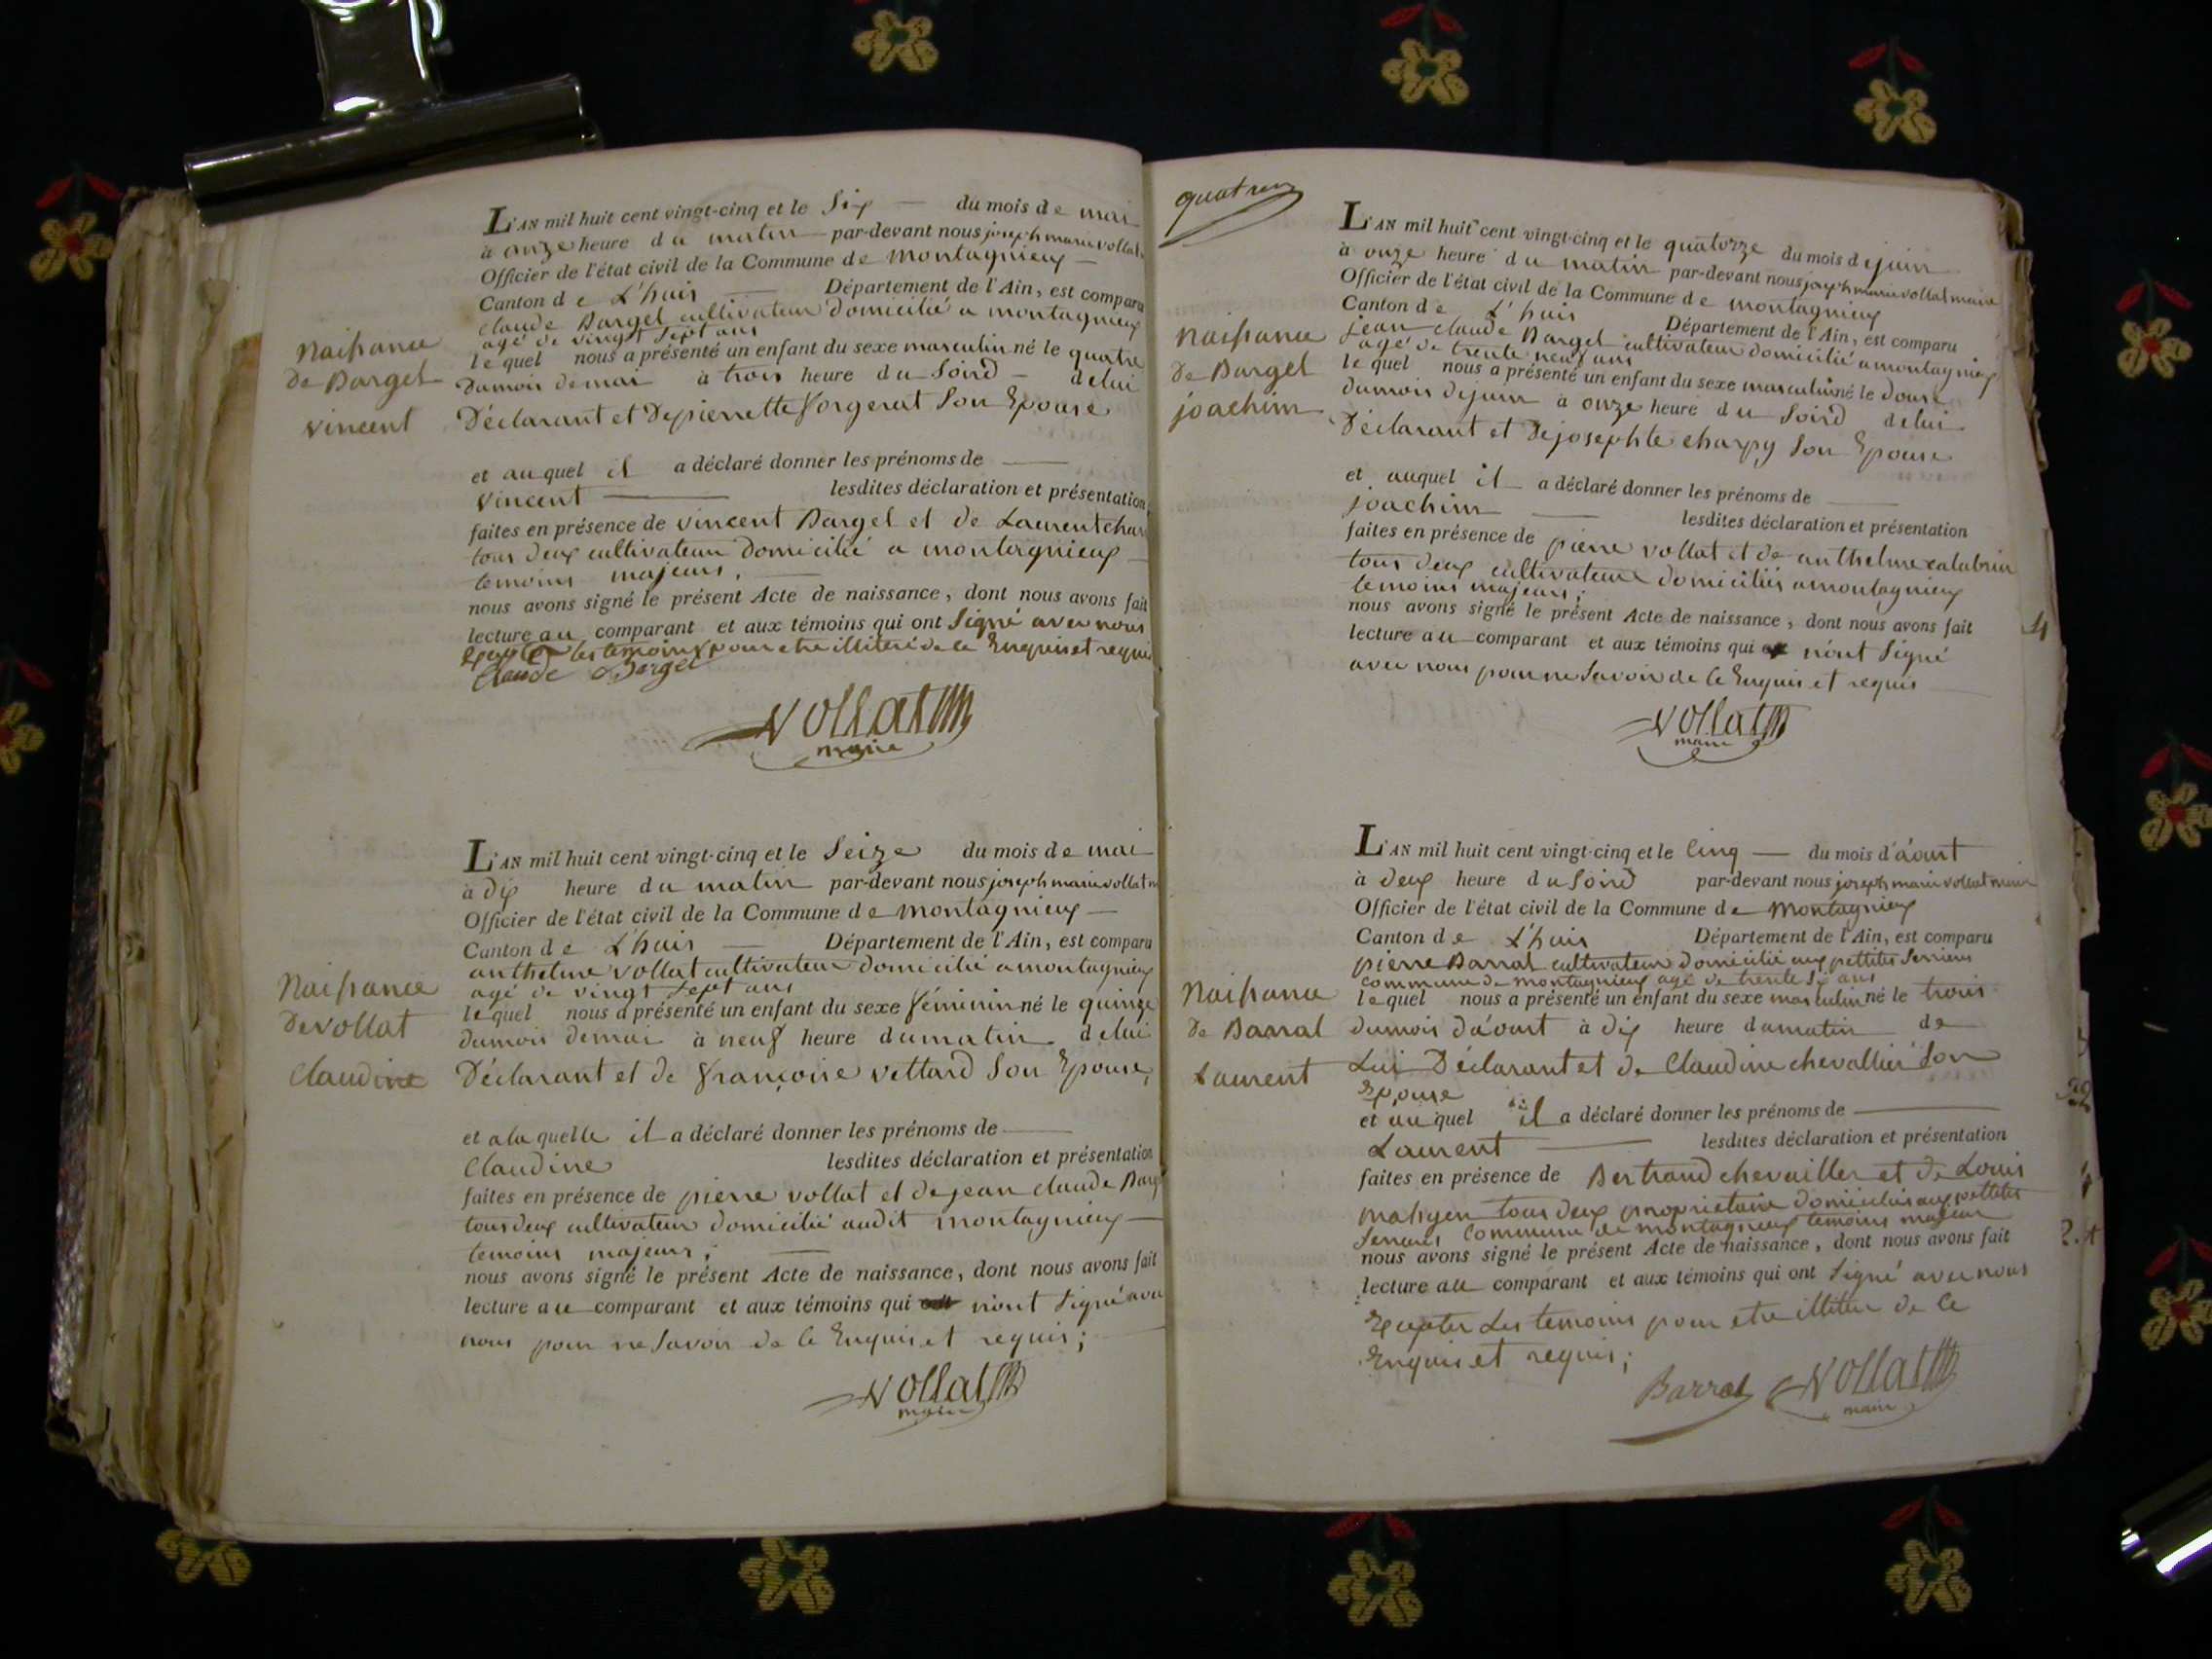 L'AN mil huit cent vingt-cinq et le Six — du mois de mai
à onze heure du matin par-devant nous joseph marie vollat
Officier de l'état civil de la Commune de Montagnieux
Canton de L'huis Département de l'Ain, est comparu
Claude Barget cultivateur domicilié a montagnieux
agé de vingt sept ans
lequel nous a présenté un enfant du sexe masculin né le quatre
dumois demai à trois heure du Soird delui
Déclarant et De pierrette Forgerat Son Epouse
et auquel il a déclaré donner les prénoms de
Vincent lesdites déclaration et présentation
faites en présence de vincent Barget et de Laurent
tous deux cultivateur Domicilié a montagnieux
temoins majeurs,
nous avons signé le présent Acte de naissance, dont nous avons fait
lecture au comparant et aux témoins qui ont Signé avec nous
les temoins pour etre illiteré de ce Enquis et requis
Claude Barget
Vollat
maire
Naissance
De Barget
vincent
L'AN mil huit cent vingt-cinq et le Seize du mois de mai
à dix heure du matin par-devant nous joseph marie vollat m
Officier de l'état civil de la Commune de Montagnieux
Canton de L'huis Département de l'Ain, est comparu
anthelme vollat cultivateur domicilié a montagnieux
agé de vingt sept ans
lequel nous a présenté un enfant du sexe féminin né le quinze
dumois demai à neuf heure dumatin delui
Déclarant et de françoise vettard Son Epouse,
et a laquelle il a déclaré donner les prénoms de
Claudine lesdites déclaration et présentation
faites en présence de pierre vollat et de jean claude Barget
tous deux cultivateur domicilié audit montagnieux
temoins majeurs;
nous avons signé le présent Acte de naissance, dont nous avons fait
lecture au comparant et aux témoins qui n'ont Signé avec
nous pour ne Savoir de ce Enquis et requis;
Vollat
maire
Naissance
De vollat
Claudine
quatre
L'AN mil huit cent vingt-cinq et le quatorze du mois de juin
à onze heure du matin par-devant nous joseph marie vollat maire
Officier de l'état civil de la Commune de montagnieux
Canton de L'huis Département de l'Ain, est comparu
jean claude Barget cultivateur domicilié a montagnieux
agé de trente neuf ans
lequel nous a présenté un enfant du sexe masculin né le douse
dumois dejuin à onze heure du Soird delui
Déclarant et De josephte charpy Son Epouse
et auquel il a déclaré donner les prénoms de
joachim lesdites déclaration et présentation
faites en présence de pierre vollat et de anthelme
tous deux cultivateur domiciliés a montagnieux
temoins majeurs;
nous avons signé le présent Acte de naissance, dont nous avons fait
lecture au comparant et aux témoins qui n'ont Signé
avec nous pour ne Savoir de ce Enquis et requis
Vollat
maire
Naissance
De Barget
joachim
L'AN mil huit cent vingt-cinq et le Cinq — du mois d'août
à deux heure du Soird par-devant nous joseph marie vollat maire
Officier de l'état civil de la Commune de Montagnieux
Canton de L'huis Département de l'Ain, est comparu
pierre Barral cultivateur domicilié aux pettites Serrieres
Commune de montagnieux agé de trente Six ans
lequel nous a présenté un enfant du sexe masculin né le trois
dumois d'août à dix heure dumatin de
Lui Déclarant et de Claudine chevallier Son
Epouse
et auquel il a déclaré donner les prénoms de
Laurent lesdites déclaration et présentation
faites en présence de Bertrand chevailler et de Louis
tous deux propriétaire domiciliés aux pettites
Commune de montagnieux temoins majeur
nous avons signé le présent Acte de naissance, dont nous avons fait
lecture au comparant et aux témoins qui ont Signé avec nous
Les temoins pour etre de ce
Enquis et requis;
Barral
Vollat
maire
Naissance
De Barral
Laurent